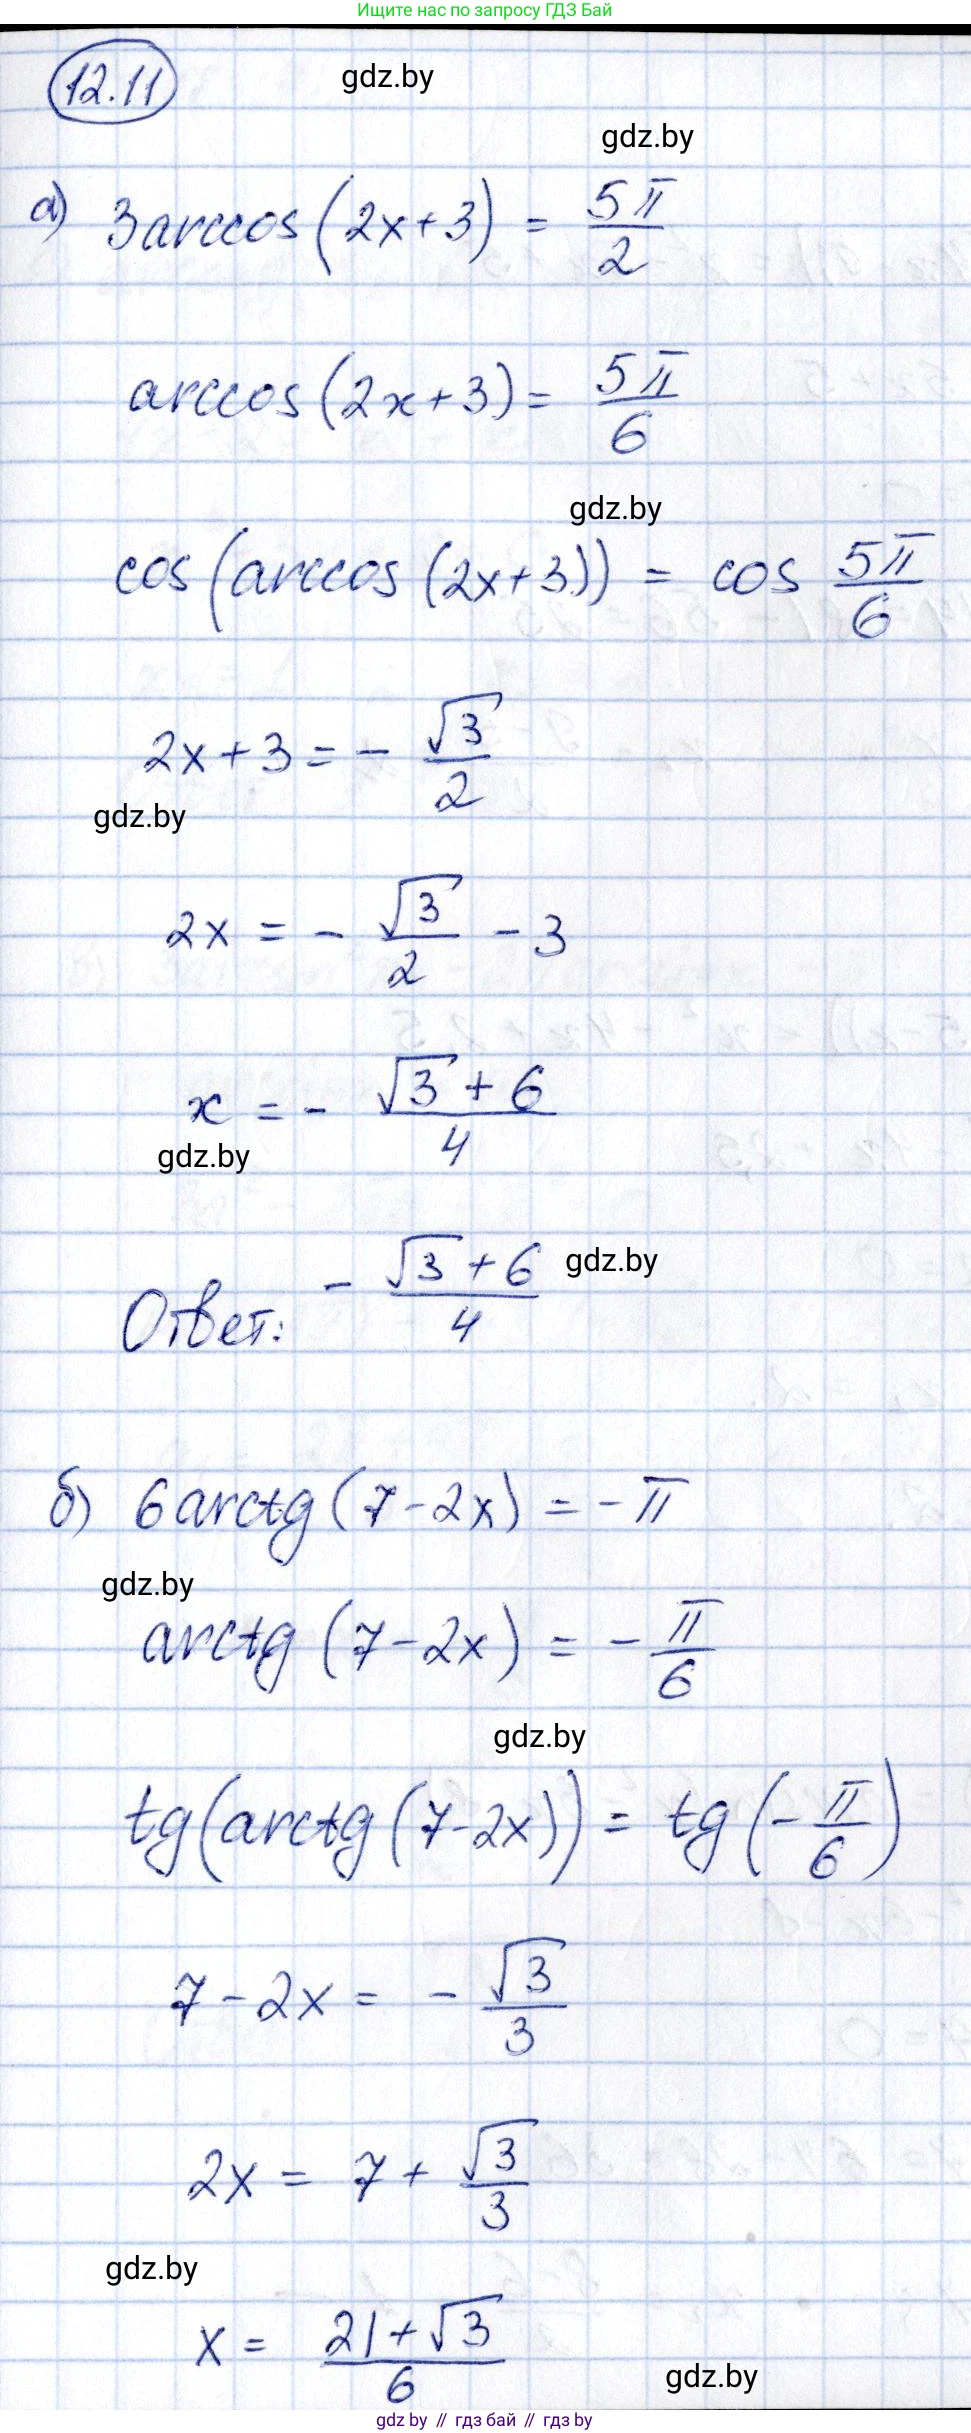 Ищите нас по запросу ГДЗ Бай
12.11
gdz.by
gdz.by
а) 3arccos(2x+3) = 5π/2
arccos(2x+3) = 5π/6
gdz.by
cos(arccos(2x+3)) = cos 5π/6
2x+3 = - √3/2
gdz.by
2x = - √3/2 - 3
x = - (√3+6)/4
gdz.by
Ответ: - (√3+6)/4
gdz.by
б) 6arctg(7-2x) = -π
gdz.by
arctg(7-2x) = - π/6
gdz.by
tg(arctg(7-2x)) = tg(-π/6)
7-2x = - √3/3
2x = 7 + √3/3
gdz.by
x = (21+√3)/6
gdz.by
gdz.by // гдз бай // гдз by